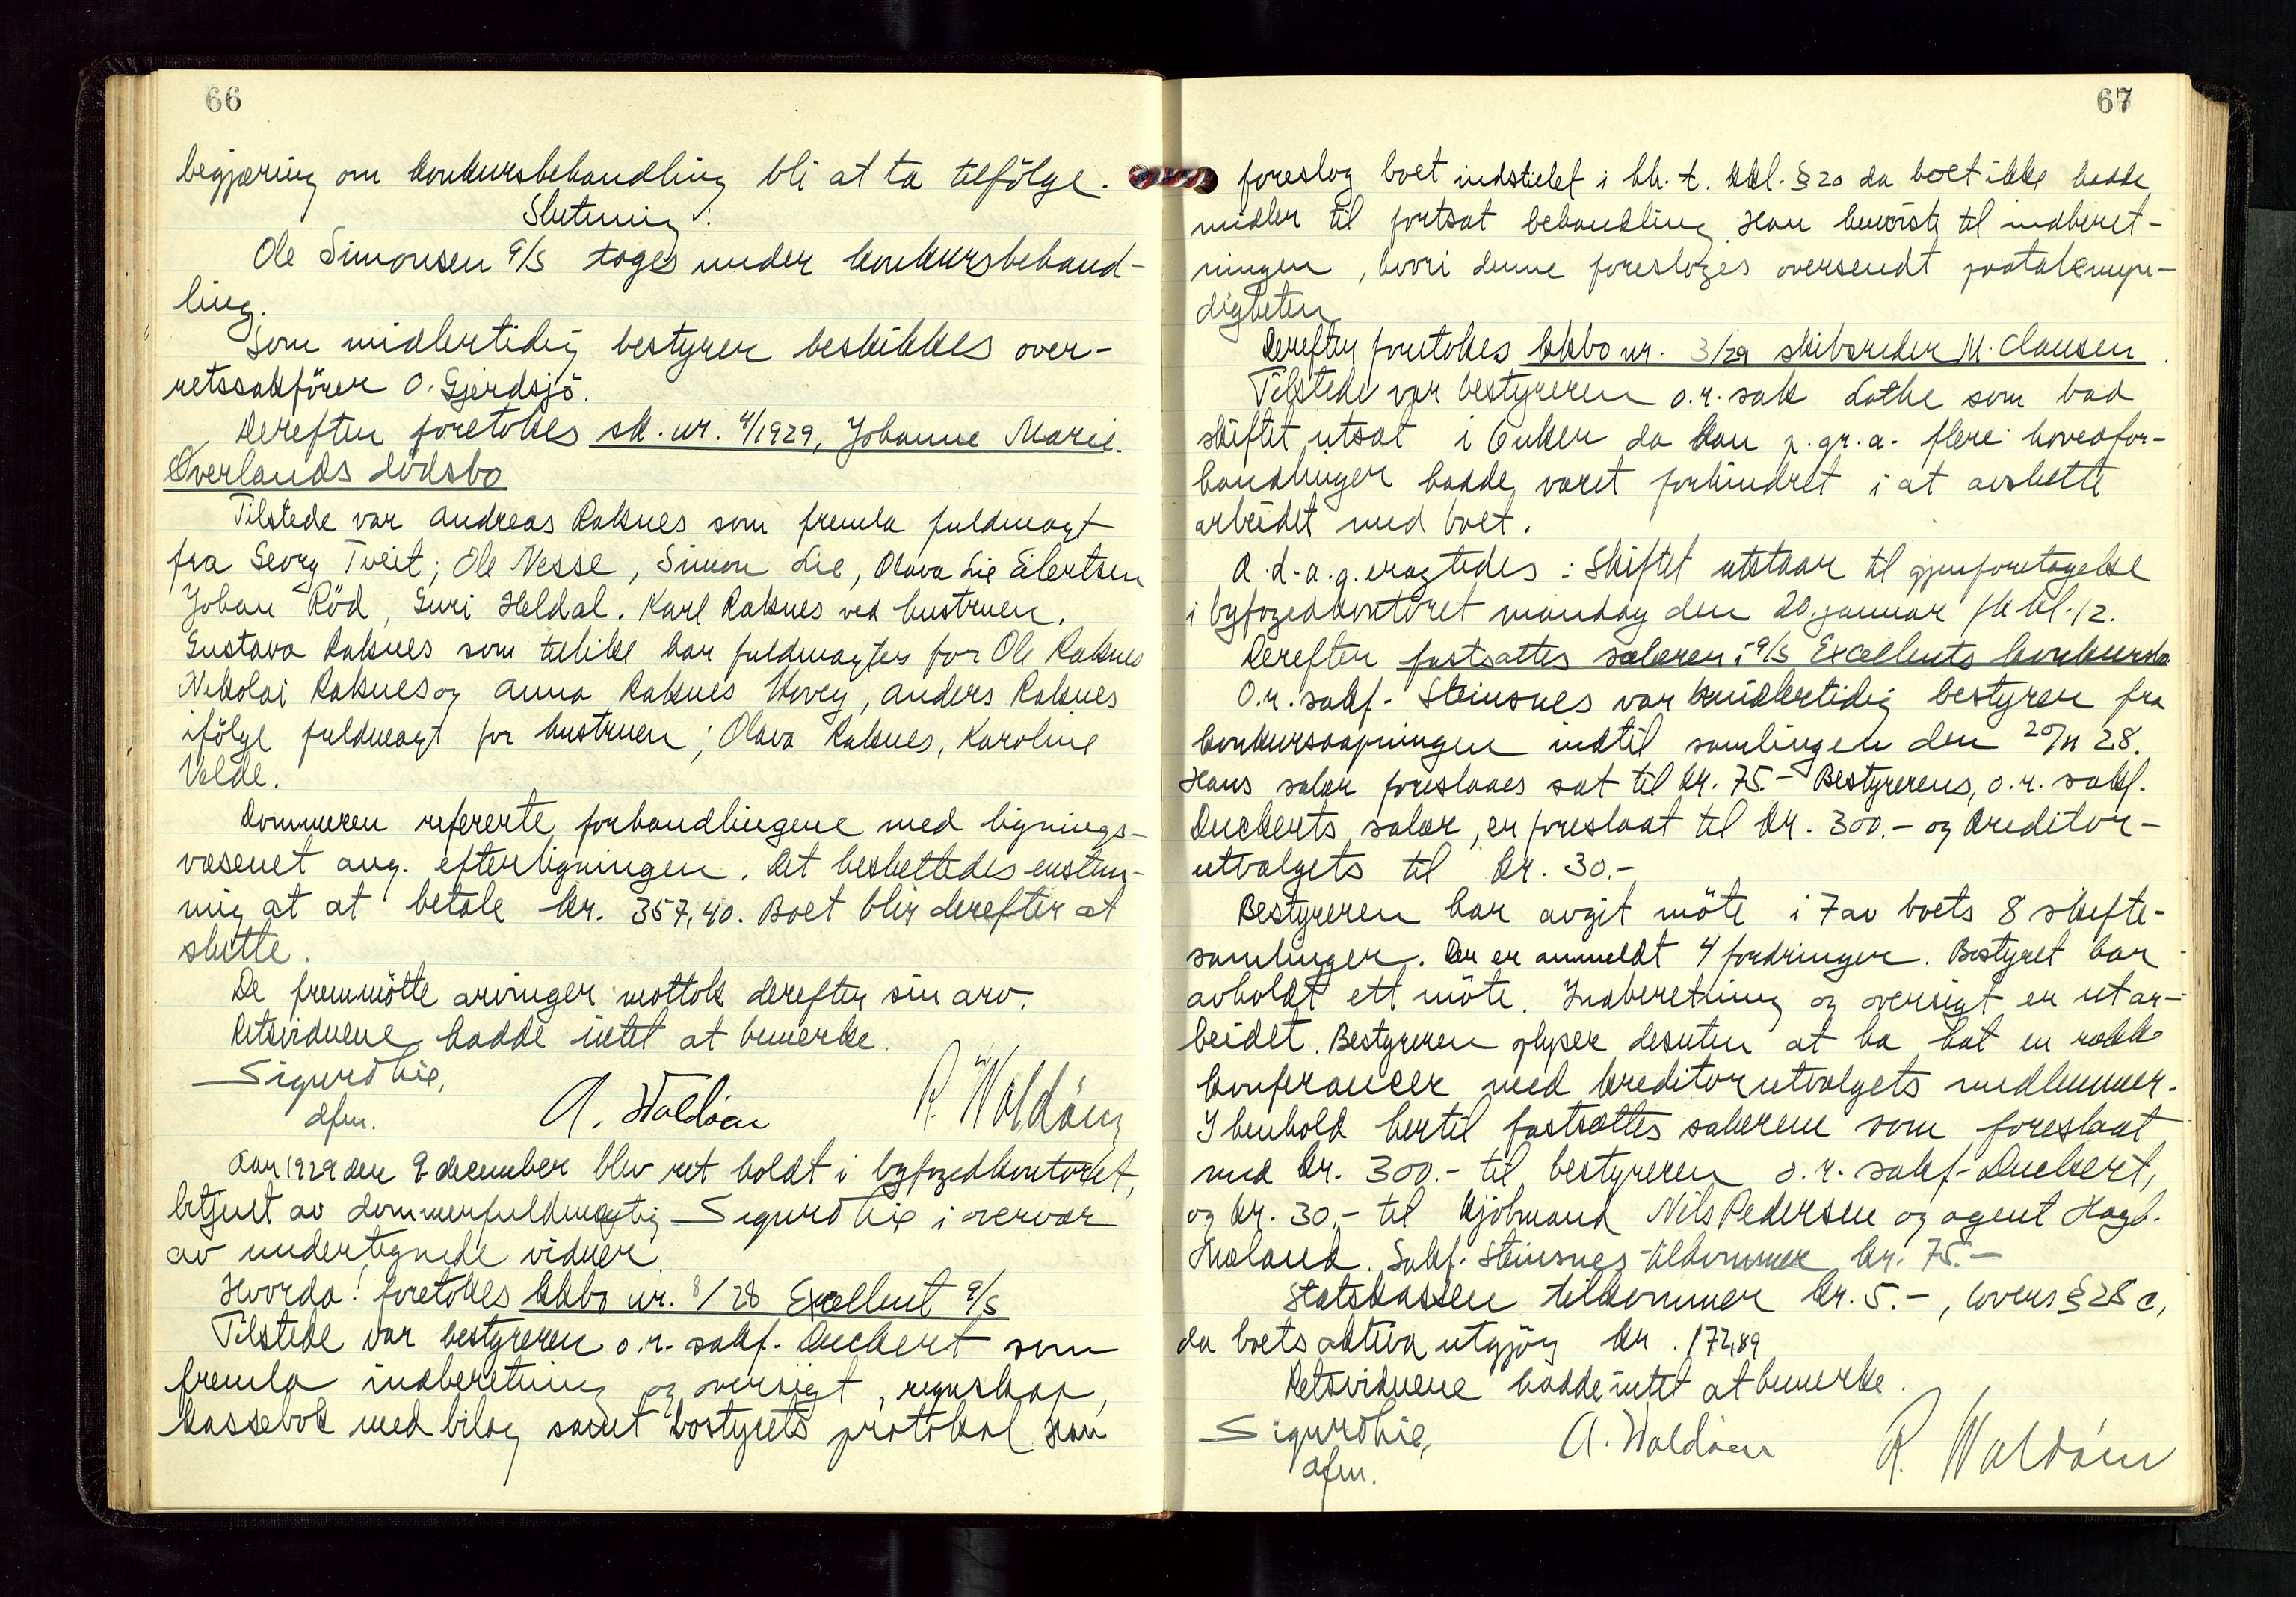 66
begjæring om konkursbehandling bli at ta tilfölge.
Slutning:
Ole Simonsen A/S tages under konkursbehand-
ling.
Som midlertidig bestyrer beskikkes over-
retssakförer O. Gjerdsjö.
Derefter foretokes sk. nr. 4/1929, Johanne Marie
Øverlands dödsbo
Tilstede var Andreas Raknes som fremla fuldmagt
fra Georg Tveit; Ole Nesse, Simon Lie, Olava Lie Eilertsen
Johan Röd, Guri Heldal. Karl Raknes ved hustruen.
Gustava Raknes som tillike har fuldmagter for Ole Raknes
Nikolai Raknes og Anna Raknes Hovey, Anders Raknes
ifölge fuldmagt for hustruen; Olava Raknes, Karoline
Velde.
Dommeren refererte forhandlingene med lignings-
væsenet ang. efterligningen. Det besluttedes enstem-
mig at at betale kr. 357,40. Boet blir derefter at
slutte.
De fremmötte arvinger mottok derefter sin arv.
Retsvidnene hadde intet at bemerke.
Sigurd Lie,
dfm.
A. Waldöen
R. Waldöen
Aar 1929 den 9 december blev ret holdt i byfogedkontoret,
betjent av dommerfuldmægtig Sigurd Lie i overvær
av undertegnede vidner.
Hvorda! foretokes kkbo nr. 8/28 Excellent A/S
Tilstede var bestyreren o.r. sakf. Duckert som
fremla indberetning og oversigt, regnskap,
kassebok med bilag samt bostyrets protokol. Han
67
foreslog boet indstillet i hh. t. kkl. § 20 da boet ikke hadde
midler til fortsat behandling. Han henviste til indberet-
ningen, hvori denne foresloges oversendt paatalemyn-
digheten
Derefter foretokes kkbo nr. 3/29 skibsreder M. Clausen.
Tilstede var bestyreren o.r. sak Lothe som bad
skiftet utsat i 6 uker da han p. gr. a. flere hovedfor-
handlinger hadde været forhindret i at avslutte
arbeidet med boet.
A. d. a. g. eragtedes: Skiftet utstaar til gjenforetagelse
i byfogedkontoret mandag den 20. januar fk kl. 12.
Derefter fastsattes salæren i A/S Excellents konkursbo
O.r. sakf. Steinsnes var midlertidig bestyrer fra
konkursaapningen indtil samlingen den 20/11 28.
Hans salær foreslaaes sat til kr. 75.- Bestyrerens, o.r. sakf.
Duckerts salær, er foreslaat til kr. 300.- og kreditor-
utvalgets til kr. 30.-
Bestyreren har avgit möte i 7 av boets 8 skifte-
samlinger. Der er anmeldt 4 fordringer. Bostyret har
avholdt ett möte. Indberetning og oversigt er utar-
beidet. Bestyreren oplyser desuten at ha hat en række
konferancer med kreditorutvalgets medlemmer.
I henhold hertil fastsættes salærene som foreslaat
med kr. 300.- til bestyreren o.r. sakf. Duckert,
og kr. 30.- til kjöbmand Nils Pedersen og agent Hagb.
Sakf. Steinsnes tilkommer kr. 75.-
Statskassen tilkommer kr. 5.-, lovens § 28 c,
da boets aktiva utgjör kr. 172,89
Retsvidnene hadde intet at bemerke.
Sigurd Lie,
dfm.
A. Waldöen
R. Waldöen